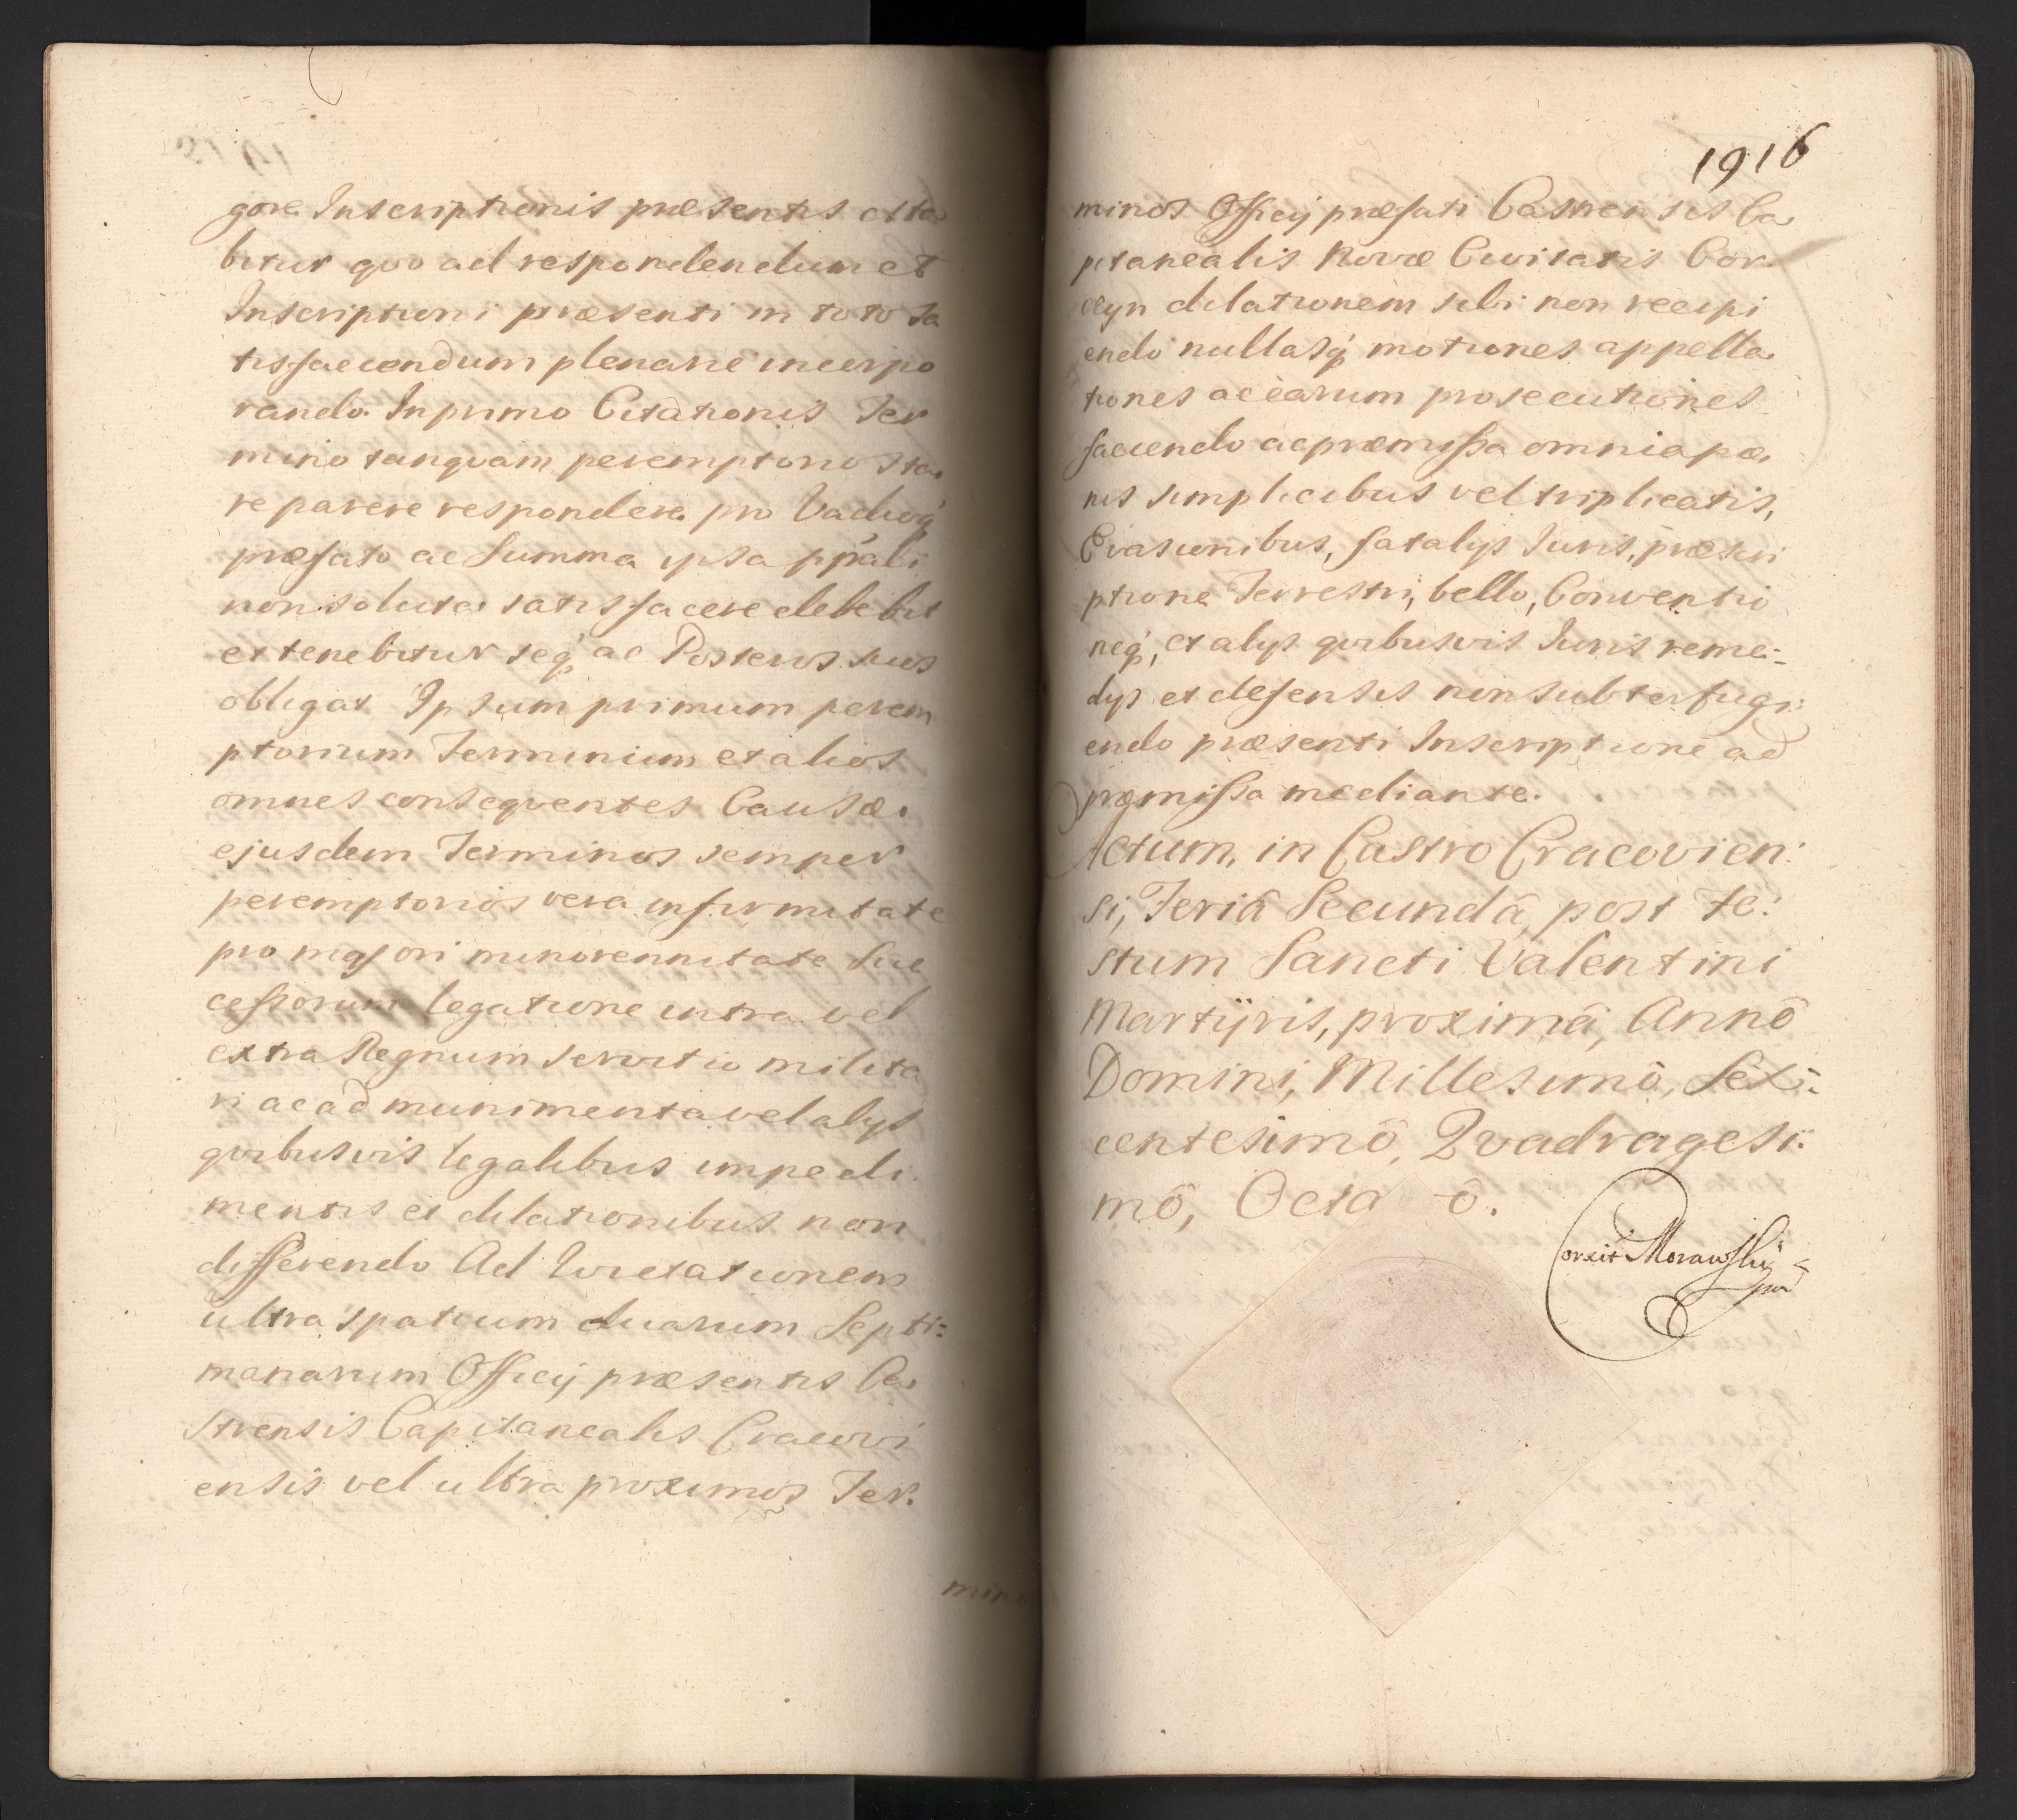 gore Inscriptionis præsentis cita
bitur quo ad respondendum et
Inscriptioni præsenti in toto Sa
tisfaciendum plenarie incorpo
rando. In primo Citationis Ter
mino tanqvam peremptorio sta
re parere respondere pro Vadioq́
præfato ac Summa ipsa ppali
non soluta satisfacere debebit
et tenebitur seq́ ac Posteros suos
obligat Ipsum primum perem
ptorium Terminum et alios
omnes conseqventes Causæ
ejusdem Terminos semper
peremptorios vera infirmitate
pro majori minorennitate Suc
cessorum legatione intra vel
extra Regnum servitio milita
ri ac ad munimenta vel alys
qvibusvis legalibus impedi
mentis et dilationibus non
differendo Ad
ultra spatium duarum Septi=
manarum Officij præsentis Ca
strensis Capitanealis Cracovi
ensis vel ultra proximos Ter.
mino
1916
minos Officij præfati Castrensis Ca
pitanealis Novæ Civitatis Cor
czyn dilationem sibi non recipi
endo nullasq́ motiones appella
tiones ac earum prosecutiones
faciendo ac præmissa omnia pæ
nis simplicibus vel triplicatis,
Evasionibus, fatalys Juris, præscri
ptione Terrestri, bello, Conventio
neq́, et alys qvibusvis Juris reme=
dys et defensis non subterfugi
endo præsenti Inscriptione ad
præmissa mediante.
Actum, in Castro Cracovien:
si, Feriâ Secundâ, post Fe:
stum Sancti Valentini
Martÿris, proximâ, Annô
Domini, Millesimô, Sex:
centesimô, Qvadragesi:
mô, Octa ô.
Corexit Morawski
mp